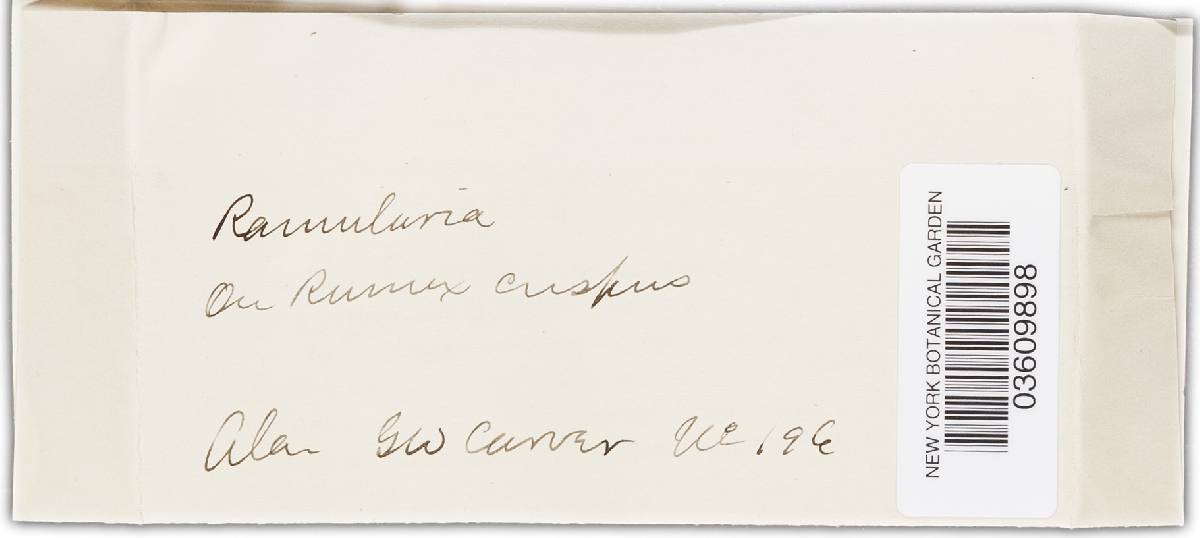 Ramularia
On Rumex crispus
Ala. GW Carver No 196
NEW YORK BOTANICAL GARDEN
03609898